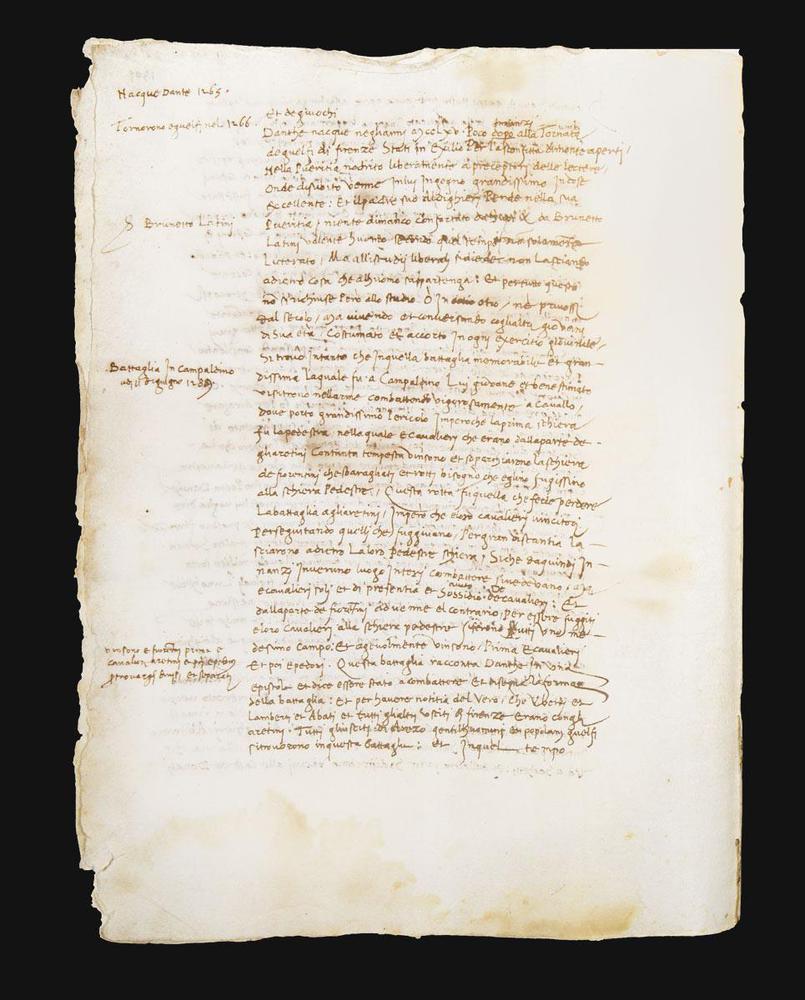 Nacque Dante 1265.
Tornorono e guelfi nel 1266.
Brunetto Latini
Battaglia In Campaldino
adi di giugno 1289
vinsono e fiorenti prima e
cavalieri aretini e poi epedoni
Et de giuochi
innanzi
Danthe nacque negli anni Mcclxv. Poco dopo alla Tornata
de guelfi di firenze Stati in Exilio Per la sconfitta di monte aperti /
Nella Pueritia nodrito liberalmente a preceptori delle lettere /
Onde di subito venne In lui Ingegno grandissimo
Excellente: Et il padre suo Aldighieri Perde nella sua
Pueritia / niente dimanco confortato da & da Brunetto
Latini valente huomo secondo quel tempo non solamente
Litterato / Ma alli studij liberali si diede: non lasciando
adietro cosa che a lhuomo sappartenga: Et per tutto questo
no si richiuse Pero allo studio. O In otio / ne privossi
dal secolo / Ma vivendo et conversando cogli altri giovani
di Sua eta / Costumato et accorto In ogni exercitio giovinile /
Si trovo Intanto che In quella battaglia memorabile et gran-
dissima la quale fu a Campaldino Lui giovane et bene stimato
vi si trovo nell arme combattendo vigorosamente a cavallo /
dove porto grandissimo Pericolo Imperoche la prima schiera
fu la pedestra nella quale E cavalieri che erano dalla parte de-
gli aretini Con tanta tempesta vinsono et soperchiarono la schiera
de fiorentini che sbaragliati et rotti bisogno che eglino fugissino
alla schiera Pedestre / Questa rotta fu quella che fece perdere
La battaglia agli aretini / Impero che e loro cavalieri vincitori
Perseguitando quelli che fuggivano / Per gran distantia la-
sciarono adietro La loro Pedestre schiera / Siche da quindi In-
nanzi Inveruno luogo Interi combattere
e cavalieri soli et di presentia et Sossidio de cavalieri: Et
dalla parte de fiorentini advenne el contrario per essere fuggiti
e loro cavalieri alla schiera pedestre si ferono tutti uno me-
desimo campo: Et agevolmente vinsono / Prima E cavalieri
Et poi e pedoni. Questa battaglia racconta Danthe In una
epistola et dice essere stato a combattere Et disegna la forma
della battaglia: Et per havere notitia del vero / che Uberti et
Lamberti et Abati et tutti gli altri usciti di firenze erano cogli
aretini. Tutti gli usciti di Arezzo gentilhuomini et popolani guelfi
si trovorono In questa battaglia: et In quel tempo